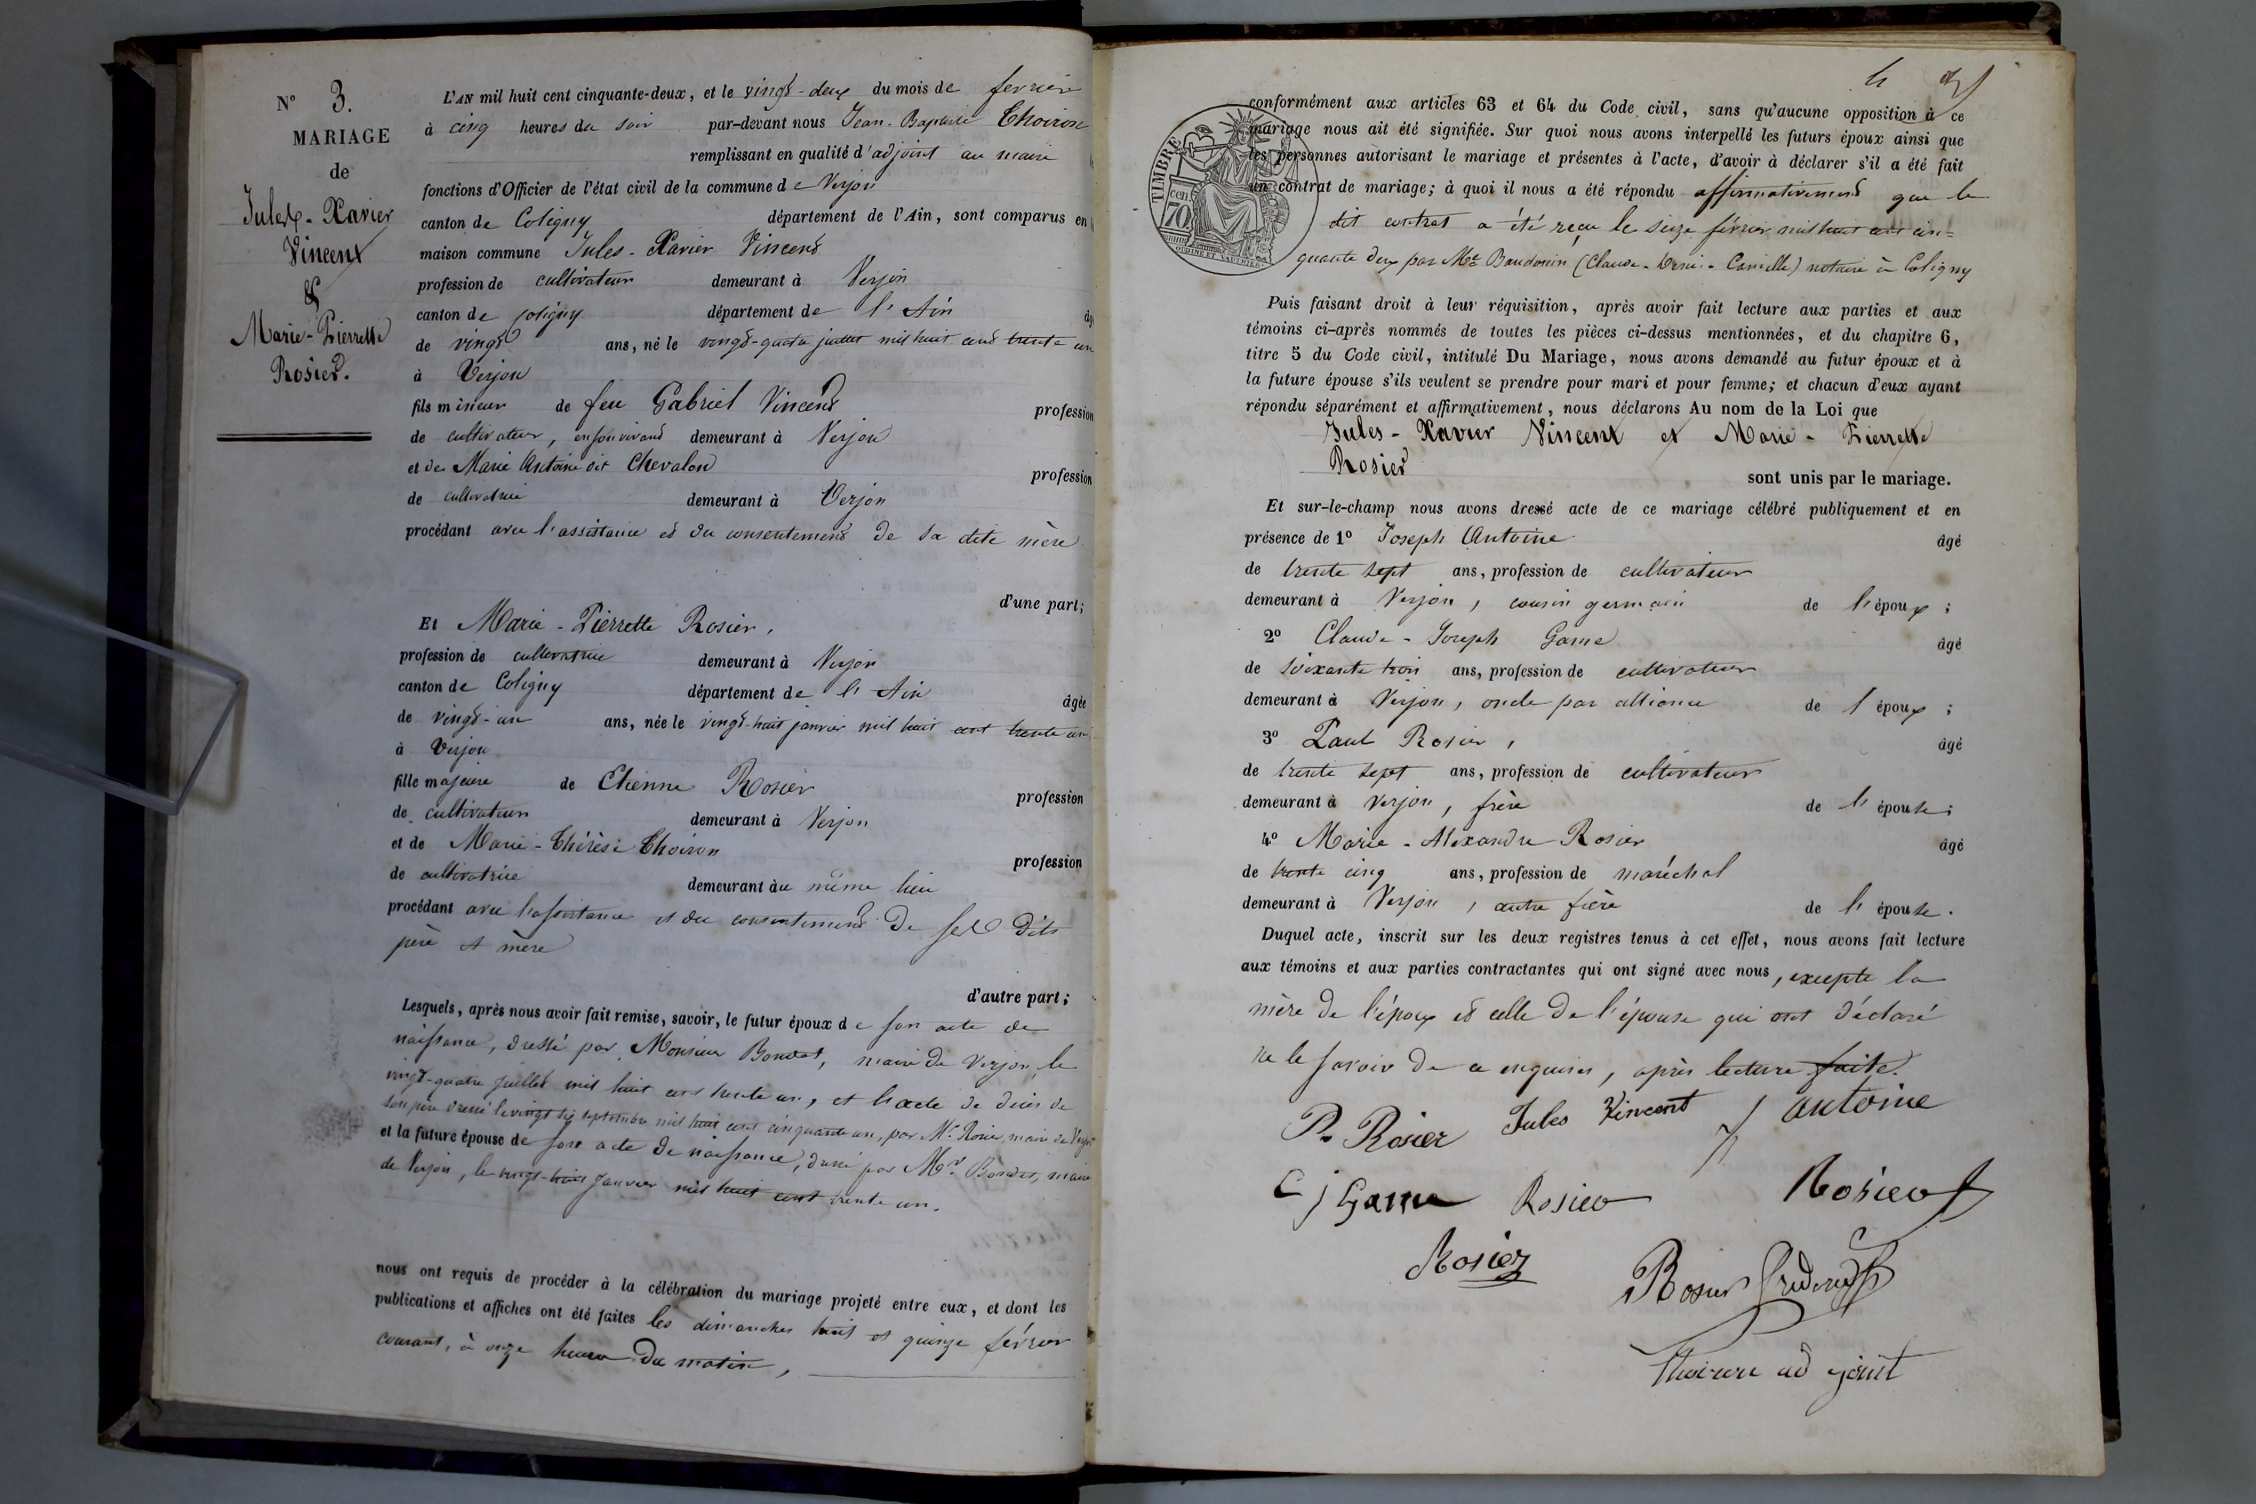 N° 3.
MARIAGE
de
Jules-Xavier
Vincent
&
Marie-Pierrette
Rosier.
L'AN mil huit cent cinquante-deux, et le vingt-deux du mois de fevrier
à cinq heures du soir par-devant nous Jean-Baptiste Thoiron
remplissant en qualité d'adjoint au maire
fonctions d'Officier de l'état civil de la commune de Verjon
canton de Coligny département de l'Ain, sont comparus en
maison commune Jules-Xavier Vincent
profession de cultivateur demeurant à Verjon
canton de Coligny département de l'Ain âgé
de vingt ans, né le vingt-quatre juillet mil huit cent trente un
à Verjon
fils mineur de feu Gabriel Vincent profession
de cultivateur, en son vivant demeurant à Verjon
et de Marie Antoine dit Chevalon profession
de cultivatrice demeurant à Verjon
procédant avec l'assistance et du consentement de sa dite mère
d'une part;
Et Marie-Pierrette Rosier,
profession de cultivatrice demeurant à Verjon
canton de Coligny département de l'Ain âgée
de vingt-un ans, née le vingt-huit janvier mil huit cent trente un
à Verjon
fille majeure de Etienne Rosier profession
de cultivateur demeurant à Verjon
et de Marie-Thérèse Thoiron profession
de cultivatrice demeurant au même lieu
procédant avec l'assistance et du consentement de ses dits
père et mère
d'autre part;
Lesquels, après nous avoir fait remise, savoir, le futur époux de son acte de
naissance, dressé par Monsieur maire de Verjon, le
vingt-quatre juillet mil huit cent trente un, et l'acte de décès de
son père dressé le vingt septembre mil huit cent cinquante un, par Mr. Rosier, maire de Verjon
et la future épouse de son acte de naissance, dressé par Mr. maire
de Verjon, le vingt-huit janvier mil huit cent trente un.
nous ont requis de procéder à la célébration du mariage projeté entre eux, et dont les
publications et affiches ont été faites les dimanches huit et quinze février
courant, à onze heures du matin,
4
TIMBRE
70 cen.
conformément aux articles 63 et 64 du Code civil, sans qu'aucune opposition à ce
mariage nous ait été signifiée. Sur quoi nous avons interpellé les futurs époux ainsi que
les personnes autorisant le mariage et présentes à l'acte, d'avoir à déclarer s'il a été fait
un contrat de mariage; à quoi il nous a été répondu affirmativement que le
dit contrat a été reçu le seize février mil huit cent cin=
quante deux par Me Baudouin (Claude-Denis-Camille) notaire à Coligny
Puis faisant droit à leur réquisition, après avoir fait lecture aux parties et aux
témoins ci-après nommés de toutes les pièces ci-dessus mentionnées, et du chapitre 6,
titre 5 du Code civil, intitulé Du Mariage, nous avons demandé au futur époux et à
la future épouse s'ils veulent se prendre pour mari et pour femme; et chacun d'eux ayant
répondu séparément et affirmativement, nous déclarons Au nom de la Loi que
Jules-Xavier Vincent et Marie-Pierrette
Rosier
sont unis par le mariage.
Et sur-le-champ nous avons dressé acte de ce mariage célébré publiquement et en
présence de 1° Joseph Antoine âgé
de trente sept ans, profession de cultivateur
demeurant à Verjon, cousin germain de l'époux;
2° Claude-Joseph Game âgé
de soixante trois ans, profession de cultivateur
demeurant à Verjon, oncle par alliance de l'époux;
3° Paul Rosier, âgé
de trente sept ans, profession de cultivateur
demeurant à Verjon, frère de l'épouse;
4° Marie-Alexandre Rosier âgé
de trente cinq ans, profession de maréchal
demeurant à Verjon, autre frère de l'épouse.
Duquel acte, inscrit sur les deux registres tenus à cet effet, nous avons fait lecture
aux témoins et aux parties contractantes qui ont signé avec nous, excepté la
mère de l'époux et celle de l'épouse qui ont déclaré
ne le savoir de ce enquises, après lecture faite.
P. Rosier Jules Vincent J antoine
C j Game Rosier Rosier
Rosier Rosier
Thoiron adjoint